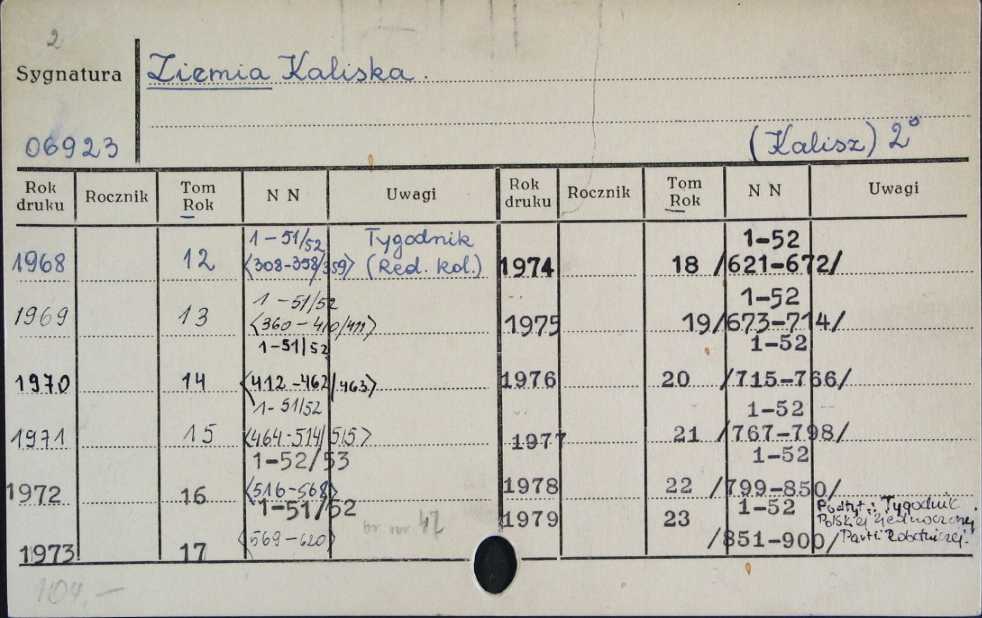 2
Sygnatura Ziemia Kaliska.
06923 (Kalisz) 2°
Rok druku Rocznik Tom Rok N N Uwagi Rok druku Rocznik Tom Rok N N Uwagi
1968 12 1-51/52 <308-358/359> Tygodnik (Red. kol.)
1969 13 1-51/52 <360-410/411>
1970 14 1-51/52 <412-462/463>
1971 15 1-51/52 <464-514/515>
1972 16 1-52/53 <516-568>
1973 17 1-51/52 <569-620> br. nr. 42
1974 18 1-52 /621-672/
1975 19 1-52 /673-714/
1976 20 1-52 /715-766/
1977 21 1-52 /767-798/
1978 22 1-52 /799-850/
1979 23 1-52 /851-900/ Podtyt.: Tygodnik Polskiej Zjednoczonej Partii Robotniczej.
104,-